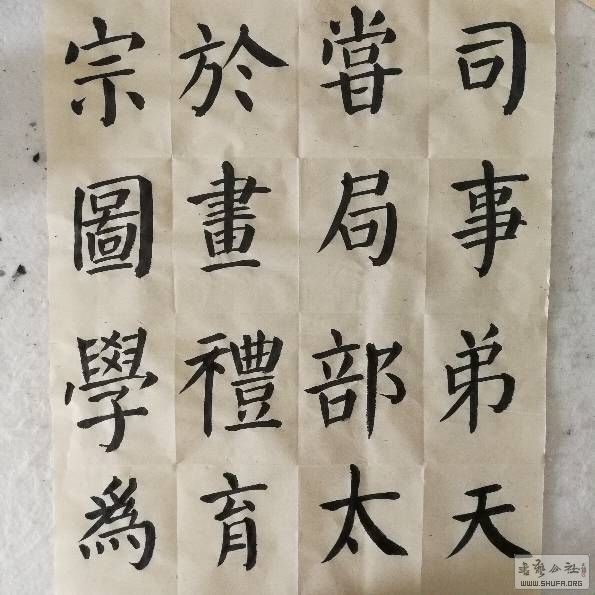 司事弟天
嘗局部太
於畫禮育
宗圖學為
WWW.SHUFA.ORG